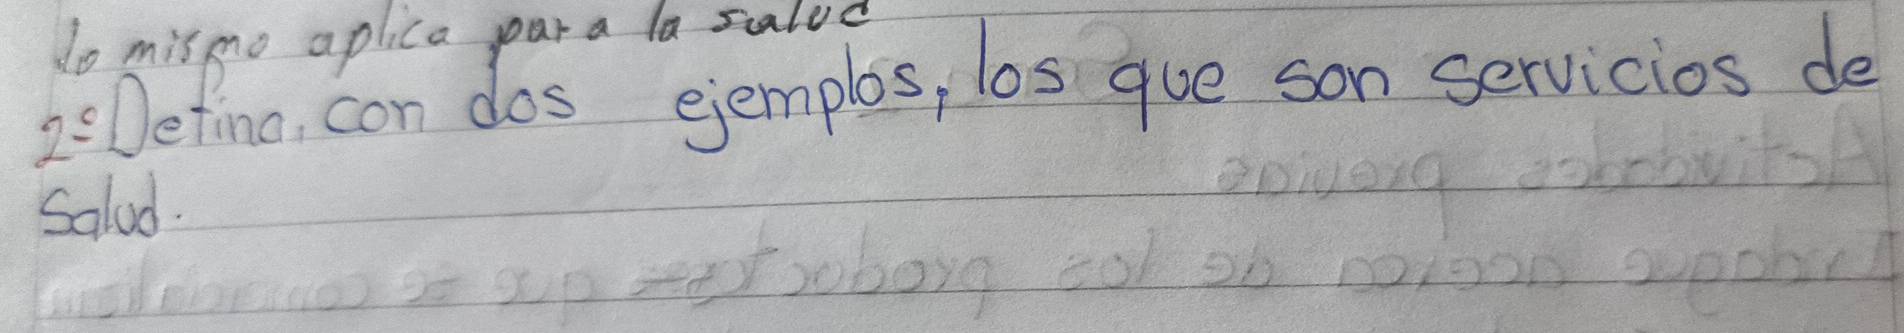 lo mismo aplica para la salud
2º Defina, con dos ejemplos, los que son servicios de
Salud.